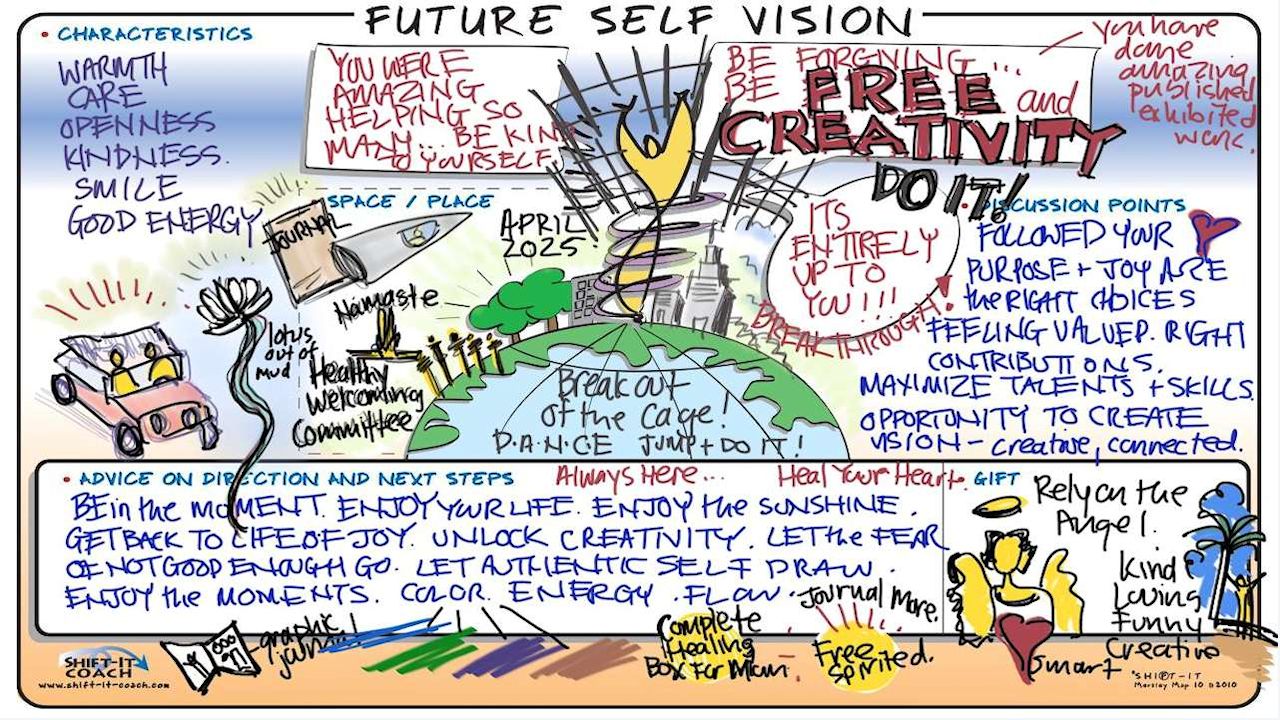 FUTURE SELF VISION
• CHARACTERISTICS
WARMTH
CARE
OPENNESS
KINDNESS.
SMILE
GOOD ENERGY
YOU WERE
AMAZING
HELPING SO
MANY... BE KIND
to YOURSELF.
BE FORGIVING...
BE FREE and
CREATIVITY
DO IT!
you have
done
amazing
published
exhibited
work.
SPACE / PLACE
JOURNAL
APRIL
2025
Namaste
lotus
out of
mud
Healthy
Welcoming
Committee
ITS
ENTIRELY
UP TO
YOU!!!
BREAKTHROUGH!
Break out
of the cage!
D.A.N.C.E JUMP + DO IT!
• DISCUSSION POINTS
FOLLOWED YOUR
PURPOSE + JOY ARE
the RIGHT CHOICES
FEELING VALUED. RIGHT
CONTRIBUTIONS.
MAXIMIZE TALENTS + SKILLS.
OPPORTUNITY TO CREATE
VISION - creative, connected.
• ADVICE ON DIRECTION AND NEXT STEPS
Always Here...
Heal Your Heart.
BE in the MOMENT. ENJOY YOUR LIFE. ENJOY the SUNSHINE.
GET BACK TO LIFE OF JOY. UNLOCK CREATIVITY. LET the FEAR
OF NOT GOOD ENOUGH GO. LET AUTHENTIC SELF DRAW.
ENJOY the MOMENTS. COLOR. ENERGY. FLOW.
GIFT
Rely on the
Angel.
Kind
Loving
Funny
Creative
Smart
graphic
journal!
Complete
Healing
Box for Mum
Journal More.
Free
Spirited.
SHIFT-IT
COACH
www.shift-it-coach.com
"SHIFT-IT